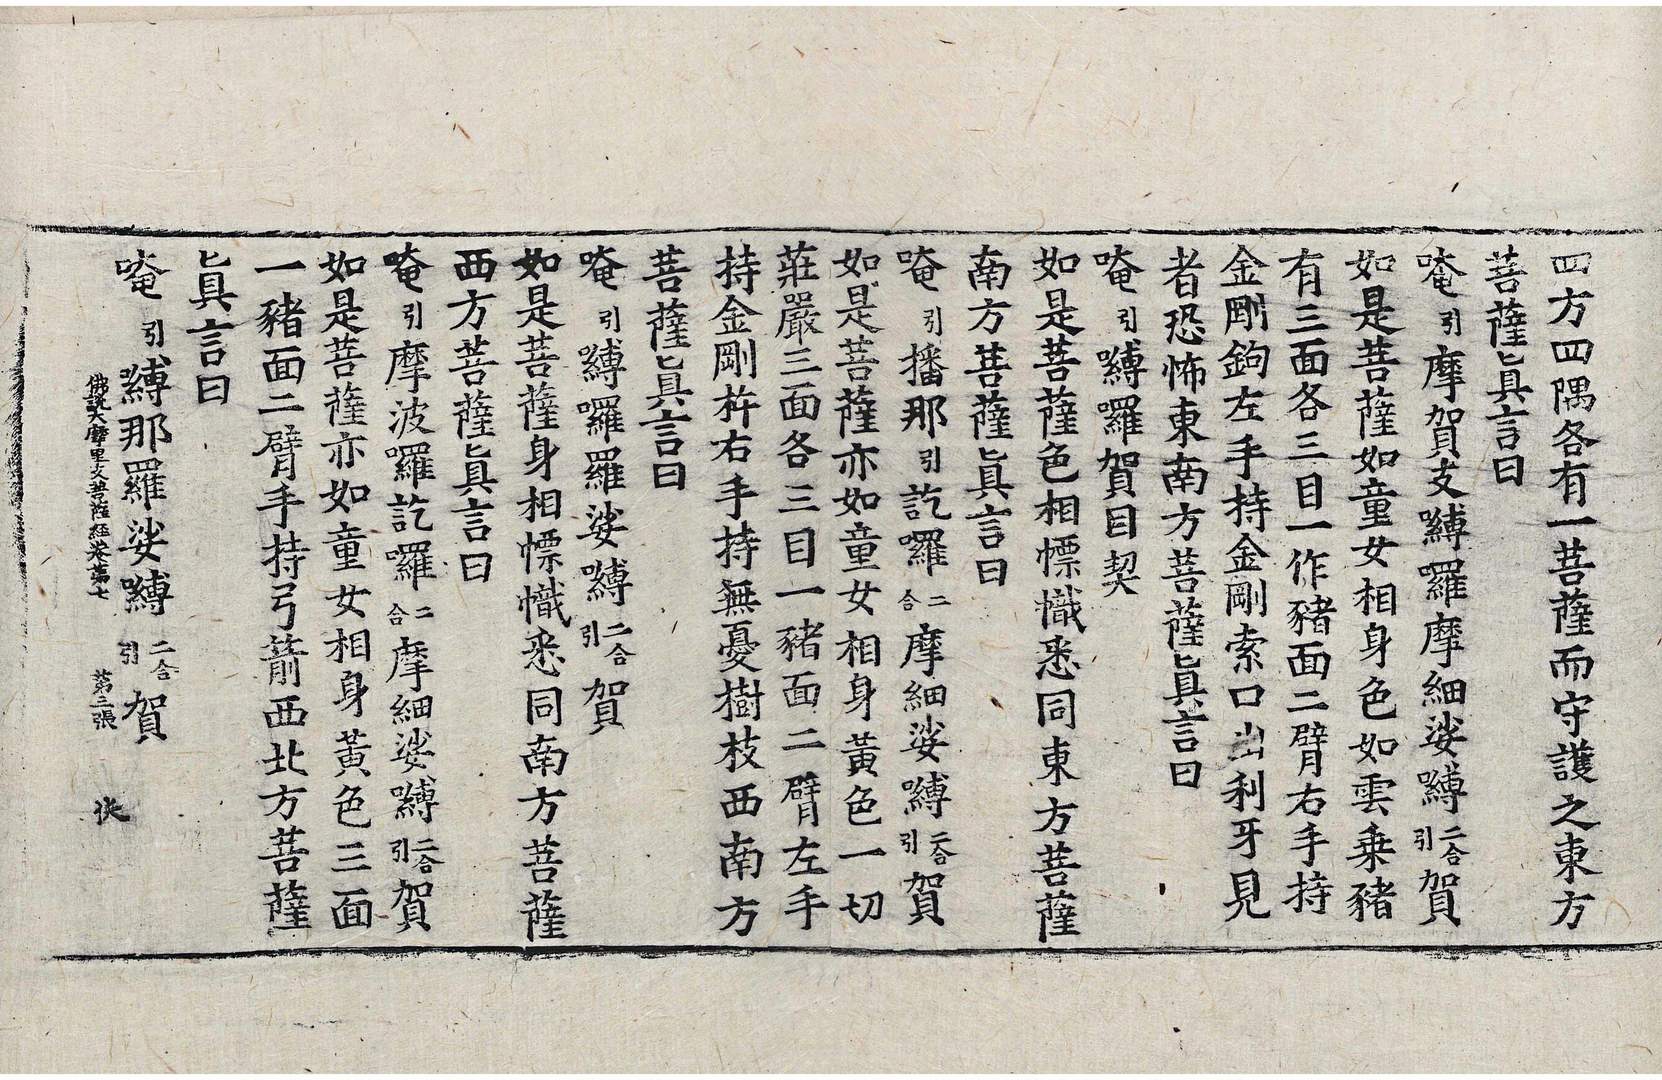 四方四隅各有一菩薩而守護之東方
菩薩眞言曰
唵引摩賀支嚩囉摩細娑嚩二合引賀
如是菩薩如童女相身色如雲乗豬
有三面各三目一作豬面二臂右手持
金剛鉤左手持金剛索口出利牙見
者恐怖東南方菩薩眞言曰
唵引嚩囉賀目契
如是菩薩色相幖幟悉同東方菩薩
南方菩薩眞言曰
唵引播那引訖囉二合摩細娑嚩二合引賀
如是菩薩亦如童女相身黃色一切
莊嚴三面各三目一豬面二臂左手
持金剛杵右手持無憂樹枝西南方
菩薩眞言曰
唵引嚩囉羅娑嚩二合引賀
如是菩薩身相幖幟悉同南方菩薩
西方菩薩眞言曰
唵引摩波囉訖囉二合摩細娑嚩二合引賀
如是菩薩亦如童女相身黃色三面
一豬面二臂手持弓箭西北方菩薩
眞言曰
唵引嚩那羅娑嚩二合引賀
佛說大摩里支菩薩經卷第七 第三張